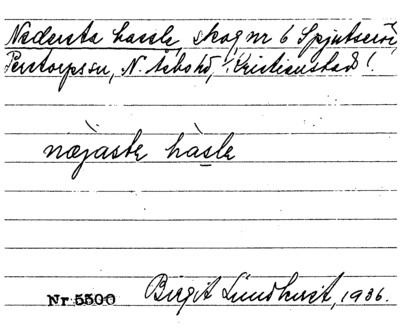 Nedersta hassle, skog nr 6 Spjutseröd,
Perstorps sn, N. Åsbo hd, Kristianstad l.
næjaste hàsle
Nr 5500 Birgit Lundkvist, 1936.